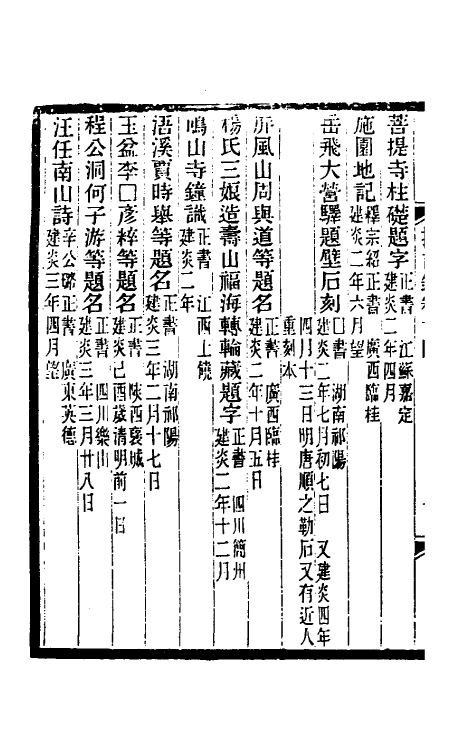 菩提寺柱礎題字 正書 江蘇嘉定
建炎二年四月
施園地記 釋宗紹正書 廣西臨桂
建炎二年六月望
岳飛大營驛題壁石刻 □書 湖南祁陽
建炎二年七月初七日 又建炎四年
四月十三日明唐順之勒石又有近人
重刻本
屏風山周與道等題名 正書 廣西臨桂
建炎二年十月五日
楊氏三娘造壽山福海轉輪藏題字 正書 四川簡州
建炎二年十二月
鳴山寺鐘識 正書 江西上饒
建炎二年
浯溪賈時舉等題名 正書 湖南祁陽
建炎三年二月十七日
玉盆李□彥粹等題名 正書 陝西襃城
建炎己酉歲清明前一日
程公洞何子游等題名 正書 四川樂山
建炎三年三月廿八日
汪任南山詩 辛公 正書 廣東英德
建炎三年四月望